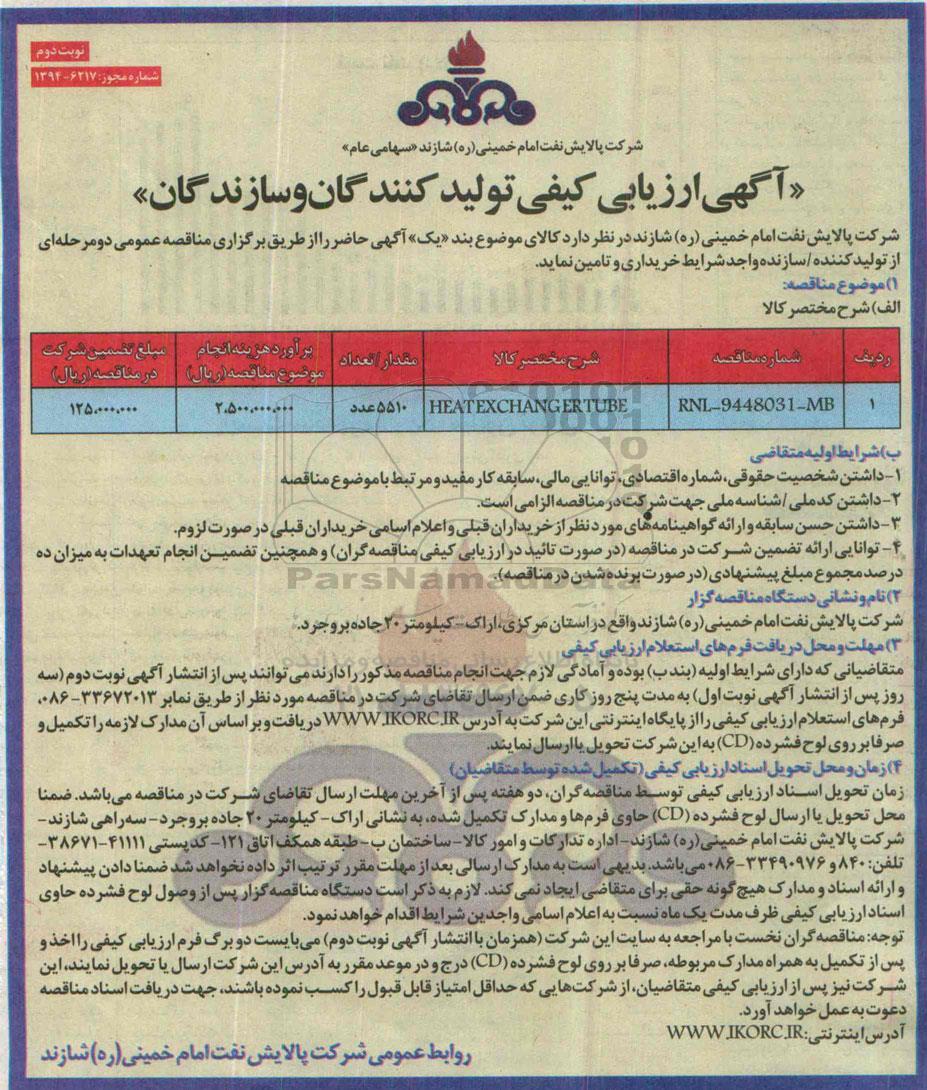 نوبت دوم
شماره مجوز: ۶۲۱۷-۱۳۹۴
شرکت پالایش نفت امام خمینی (ره) شازند «سهامی عام»
«آگهی ارزیابی کیفی تولید کنندگان و سازندگان»
شرکت پالایش نفت امام خمینی (ره) شازند در نظر دارد کالای موضوع بند «یک» آگهی حاضر را از طریق برگزاری مناقصه عمومی دو مرحله‌ای
از تولیدکننده/سازنده واجد شرایط خریداری و تامین نماید.
۱) موضوع مناقصه:
الف) شرح مختصر کالا
ردیف شماره مناقصه شرح مختصر کالا مقدار/تعداد برآورد هزینه انجام موضوع مناقصه (ریال) مبلغ تضمین شرکت در مناقصه (ریال)
۱ RNL-9448031-MB HEAT EXCHANGER TUBE ۵۵۱۰ عدد ۲،۵۰۰،۰۰۰،۰۰۰ ۱۲۵،۰۰۰،۰۰۰
ب) شرایط اولیه متقاضی
۱- داشتن شخصیت حقوقی، شماره اقتصادی، توانایی مالی، سابقه کار مفید و مرتبط با موضوع مناقصه
۲- داشتن کد ملی/شناسه ملی جهت شرکت در مناقصه الزامی است.
۳- داشتن حسن سابقه و ارائه گواهینامه‌های مورد نظر از خریداران قبلی و اعلام اسامی خریداران قبلی در صورت لزوم.
۴- توانایی ارائه تضمین شرکت در مناقصه (در صورت تائید در ارزیابی کیفی مناقصه‌گران) و همچنین تضمین انجام تعهدات به میزان ده
درصد مجموع مبلغ پیشنهادی (در صورت برنده شدن در مناقصه).
ParsNamadData
۲) نام و نشانی دستگاه مناقصه گزار
شرکت پالایش نفت امام خمینی (ره) شازند واقع در استان مرکزی، اراک - کیلومتر ۲۰ جاده بروجرد.
۳) مهلت و محل دریافت فرم‌های استعلام ارزیابی کیفی
متقاضیانی که دارای شرایط اولیه (بند ب) بوده و آمادگی لازم جهت انجام مناقصه مذکور را دارند می توانند پس از انتشار آگهی نوبت دوم (سه
روز پس از انتشار آگهی نوبت اول) به مدت پنج روز کاری ضمن ارسال تقاضای شرکت در مناقصه مورد نظر از طریق نمابر ۳۳۶۷۲۰۱۳-۰۸۶،
فرم‌های استعلام ارزیابی کیفی را از پایگاه اینترنتی این شرکت به آدرس WWW.IKORC.IR دریافت و بر اساس آن مدارک لازمه را تکمیل و
صرفا بر روی لوح فشرده (CD) به این شرکت تحویل یا ارسال نمایند.
۴) زمان و محل تحویل اسناد ارزیابی کیفی (تکمیل شده توسط متقاضیان)
زمان تحویل اسناد ارزیابی کیفی توسط مناقصه گران، دو هفته پس از آخرین مهلت ارسال تقاضای شرکت در مناقصه می‌باشد. ضمنا
محل تحویل یا ارسال لوح فشرده (CD) حاوی فرم‌ها و مدارک تکمیل شده، به نشانی اراک - کیلومتر ۲۰ جاده بروجرد - سه‌راهی شازند -
شرکت پالایش نفت امام خمینی (ره) شازند - اداره تدارکات و امور کالا - ساختمان ب - طبقه همکف اتاق ۱۲۱- کدپستی ۴۱۱۱۱-۳۸۶۷۱-
تلفن: ۸۴۰ و ۳۳۴۹۰۹۷۶-۰۸۶ می‌باشد. بدیهی است به مدارک ارسالی بعد از مهلت مقرر ترتیب اثر داده نخواهد شد ضمنا دادن پیشنهاد
و ارائه اسناد و مدارک هیچ گونه حقی برای متقاضی ایجاد نمی کند. لازم به ذکر است دستگاه مناقصه گزار پس از وصول لوح فشرده حاوی
اسناد ارزیابی کیفی ظرف مدت یک ماه نسبت به اعلام اسامی واجدین شرایط اقدام خواهد نمود.
توجه: مناقصه گران نخست با مراجعه به سایت این شرکت (همزمان با انتشار آگهی نوبت دوم) می‌بایست دو برگ فرم ارزیابی کیفی را اخذ و
پس از تکمیل به همراه مدارک مربوطه، صرفا بر روی لوح فشرده (CD) درج و در موعد مقرر به آدرس این شرکت ارسال یا تحویل نمایند، این
شرکت نیز پس از ارزیابی کیفی متقاضیان، از شرکت‌هایی که حداقل امتیاز قابل قبول را کسب نموده باشند، جهت دریافت اسناد مناقصه
دعوت به عمل خواهد آورد.
آدرس اینترنتی: WWW.IKORC.IR
روابط عمومی شرکت پالایش نفت امام خمینی (ره) شازند